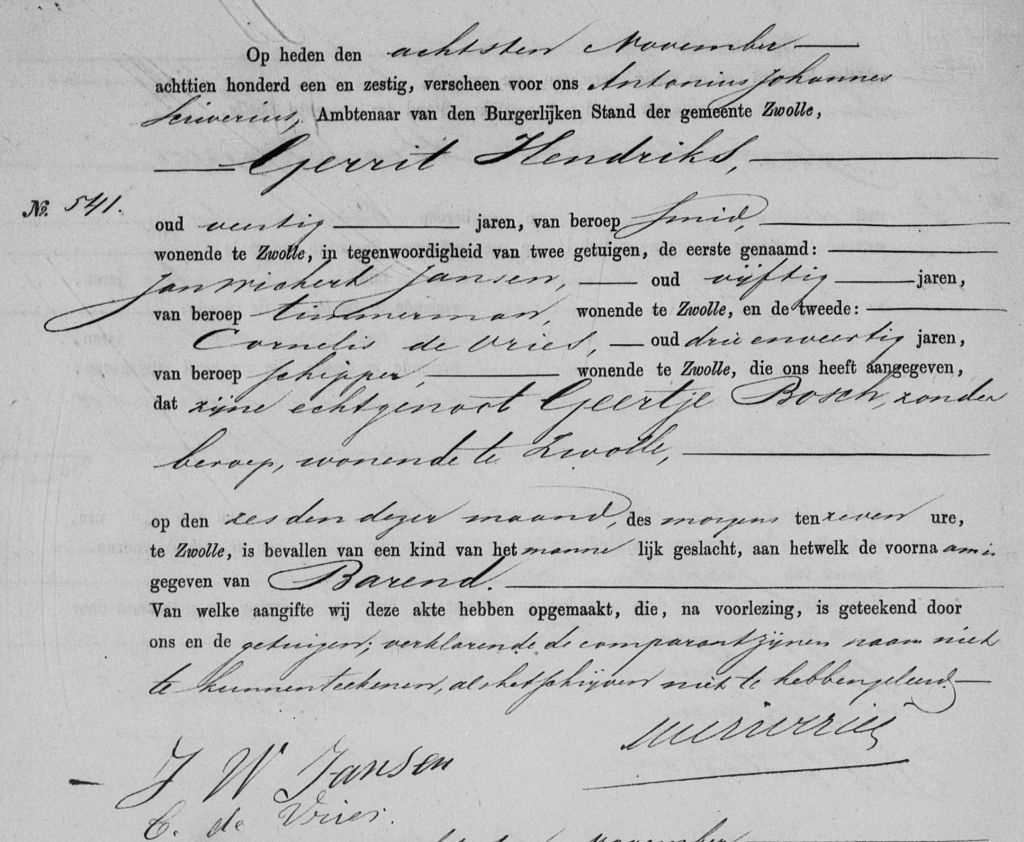 Op heden den achtsten November
achttien honderd een en zestig, verscheen voor ons Antonius Johannes
Scriverius, Ambtenaar van den Burgerlijken Stand der gemeente Zwolle,
Gerrit Hendriks,
№. 541.
oud veertig jaren, van beroep Smid,
wonende te Zwolle, in tegenwoordigheid van twee getuigen, de eerste genaamd:
Jan Wichert Jansen, oud vijftig jaren,
van beroep timmerman, wonende te Zwolle, en de tweede:
Cornelis de Vries, oud drie en veertig jaren,
van beroep schipper, wonende te Zwolle, die ons heeft aangegeven,
dat zijne echtgenoot Geertje Bosch, zonder
beroep, wonende te Zwolle,
op den zesden dezer maand, des morgens ten zeven ure,
te Zwolle, is bevallen van een kind van het mannelijk geslacht, aan hetwelk de voornaam is
gegeven van Barend.
Van welke aangifte wij deze akte hebben opgemaakt, die, na voorlezing, is geteekend door
ons en de getuigen; verklarende de comparant zijnen naam niet
te kunnen teekenen, als het schrijven niet te hebben geleerd.
J W Jansen
C. de Vries.
November